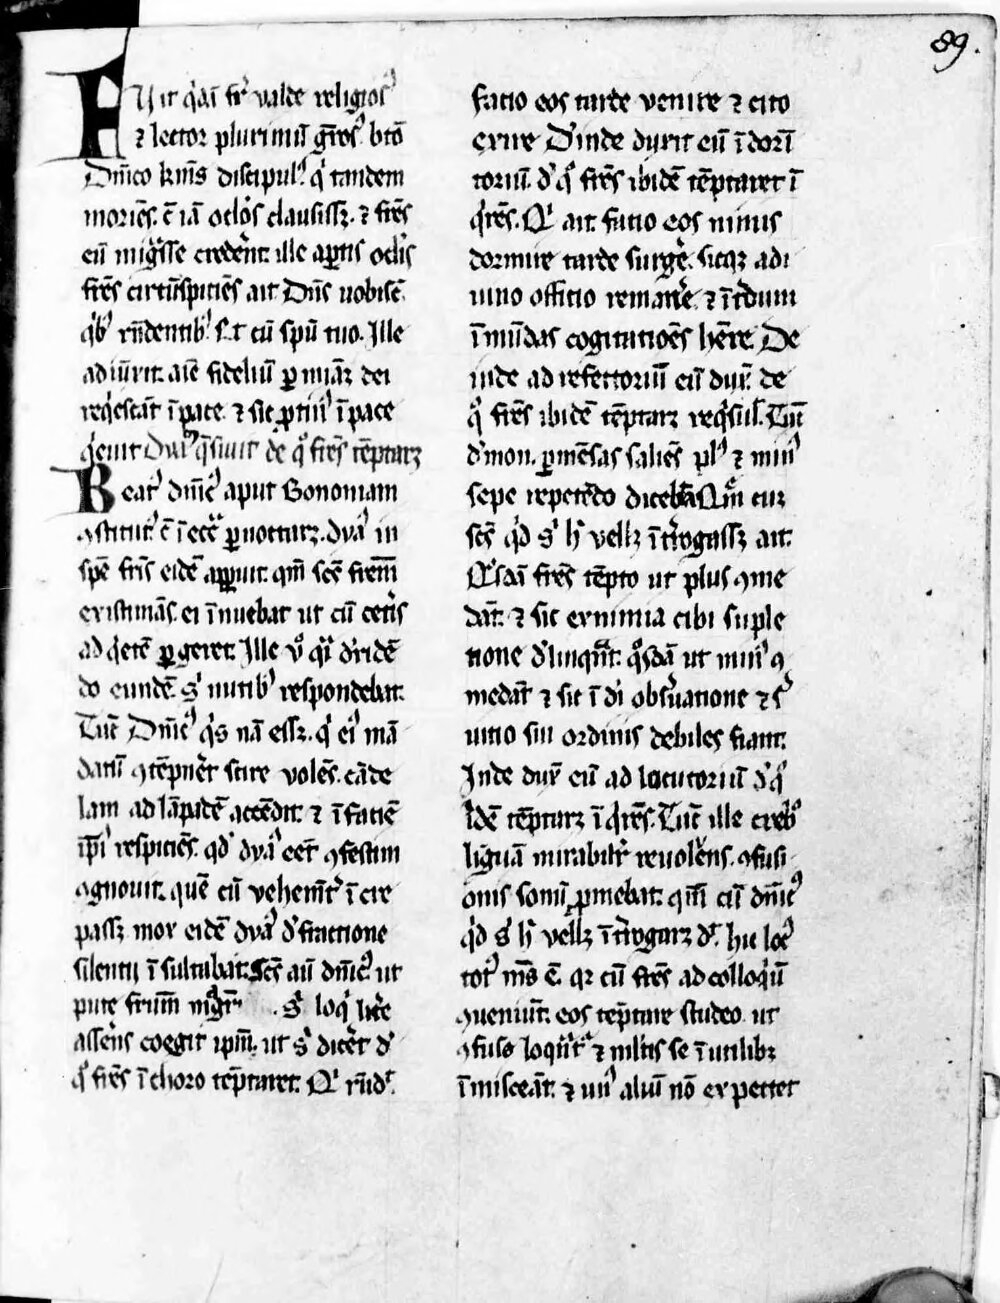 89.
Fuit q̇dā fr̄ valde religios᾽
⁊ lector plurimū gr̄os᾽ bt̄o
Dn̄ico km̄s discipul᾽ q̇ tandem
moriēs. c̄ iā oclōs clausiss&. ⁊ fr̄es
eū migͣsse credeēnt. ille aꝑtis oclīs
fr̄es circūspiciēs ait Dn̄s uobisē.
qͥb᾽ rn̄dentib᾽ Et cū spū tuo. Ille
adiūxit. aīe fideliū ꝑ mīaꝫ dei
reqͥescāt ī pace. ⁊ sic ꝓtin᾽ ī pace
qͥeuit Dyā᾽ q̄siuit de qͦ fr̄es tēptarꝫ
Beat᾽ dn̄ic᾽ aput Bononiam
ꝯstitut᾽ c̄ ī ecc̄ᵃ ꝑnoctarꝫ. dyā᾽ in
spē fr̄is eidē aꝑparuit. qm̄ sc̄s frēm
existimās. ei īnuebat ut cū cetīs
ad qͥetē ꝑgeret. Ille v̊ qͣi dͥridē
do eundē. sͥ nutib᾽ respondebat.
Tūc Dn̄ic᾽ qͥs nā ess&. qͥ ei᾽ mā
datū ꝯtēpnēr scire volēs. cāde
lam ad lāpadē accēdit. ⁊ ī faciē
ip̄i᾽ respiciēs. qd᾽ dyā᾽ eēt ꝯfestim
ꝯgnouit. quē cū vehem̄t ī cre
pass& mox eidē dyā᾽ dͥ fractione
silentij īsultabat. Sc̄s aū dn̄ic᾽ ut
pute frūm mgͣr . sͥ loqͥ licͤre
assēns coegit ip̄m. ut sͥ dicēt dͥ
qͦ fr̄es ī choro tēptaret. Qͥ rn̄dͭ.
facio eos tarde venire ⁊ cito
exire Dͥinde duxit eū ī dorī
toriū. dͥ qͦ fr̄es ibidē tēptaret ī
qͥrēs. Qͥ ait. facio eos nimis
dormire tarde surgēͤ. sicqꝫ a di
uino officio remanēͤ. ⁊ īt᾽dum
īmūdas cogitatioēs hēre. De
inde ad refectoriū eū dux̄. de
qͦ fr̄es ibidē tēptarꝫ reqͥsiu᾽. Tūc
dͥmon. ꝑ mēsas saliēs pl᾽ ⁊ min᾽
sepe repetēdo dicebā Qͣm cur
sc̄s qͥd sͥ h᾽ vell& īt᾽rogass& ait.
Qͥsdā fr̄es tēpto ut plus ꝯme
dāt. ⁊ sic ex nimia cibi suple
tione dͥlinqͣnt. qͦsdā ut min᾽ ꝯ
medāt ⁊ sic ī di᾽ obsͥuatione ⁊ sͥ
uitio sui ordinis debiles fiant.
Inde dux̄ eū ad locutoriū dͥ qͦ
ibdē tēptarꝫ ī qͥrēs. Tūc ille creb᾽
liguā mirabilit᾽ reuolēns. ꝯfusi
onis sonū ꝓmebat. quē cū dn̄ic᾽
qͥd sͥ h᾽ vell& īt᾽rogarꝫ dͭ. hic loc᾽
tot᾽ m̄s ē. qr cū fr̄es ad colloqͥū
ꝯueniūt. eos tēptare studeo. ut
ꝯfuse loqͣnt᾽ ⁊ ml̄tis se īutilibꝫ
īmisceāt. ⁊ un᾽ aliū nō expectet